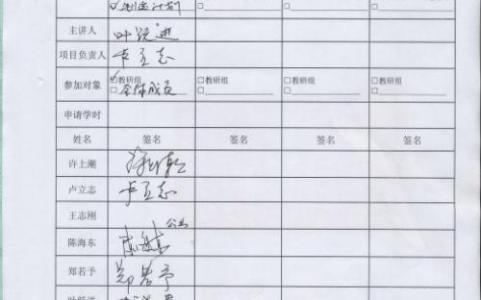 ☑制定计划
主讲人 叶跃进
项目负责人 卢立志
参加对象 ☑教研组 ☐教研组 ☐教研组 ☐教研组
☐全体成员 ☐ ☐ ☐
申请学时
姓名 签名 签名 签名 签名
许上潮
卢立志 卢立志
王志刚 公出
陈海东 陈海东
郑若予 郑若予